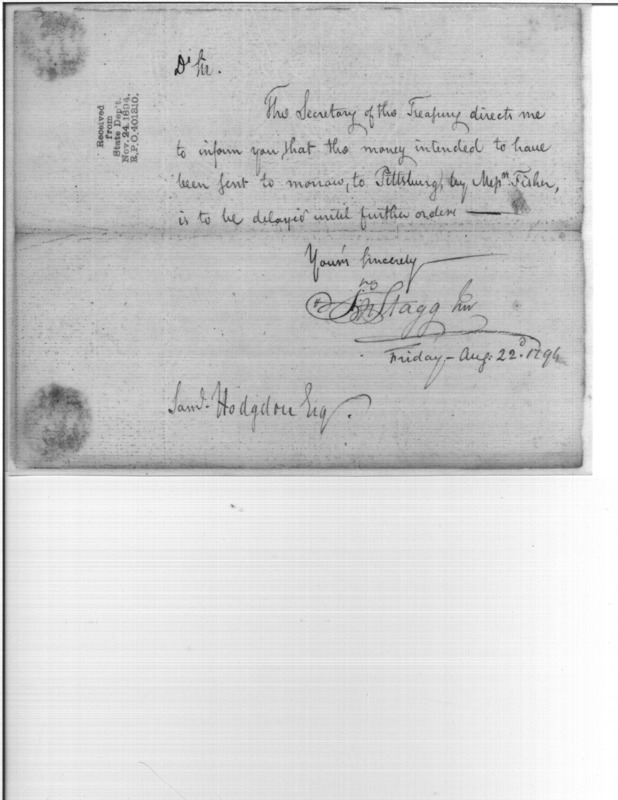 Received
from
State Dep't.
Nov. 24, 1894.
R.P.O. 401310.
Dr Sir.
The Secretary of the Treasury directs me
to inform you, that the money intended to have
been sent to morrow, to Pittsburg, by Messrs. Fisher,
is to be delayed until further orders —
Yours Sincerely
Jno Stagg Junr
Friday - Aug: 22d. 1794
Saml. Hodgdon Esq.